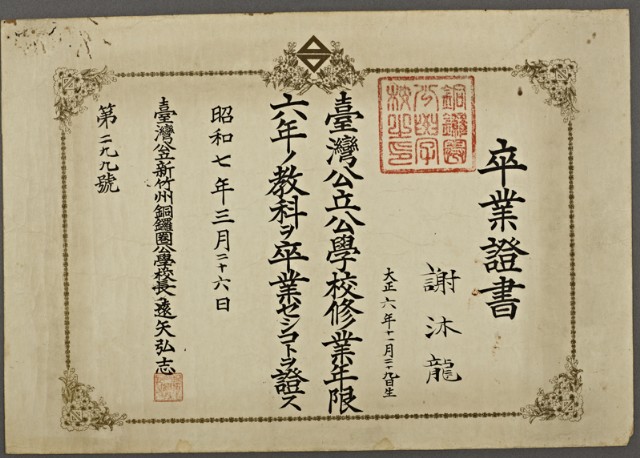 卒業證書
謝沐龍
大正六年十一月二十九日生
臺灣公立公學校修業年限
六年ノ教科ヲ卒業セシコトヲ證ス
昭和七年三月二十六日
臺灣公立新竹州銅鑼圈公學校長 遠矢弘志
第二九九號
銅鑼圈
公學
校之印